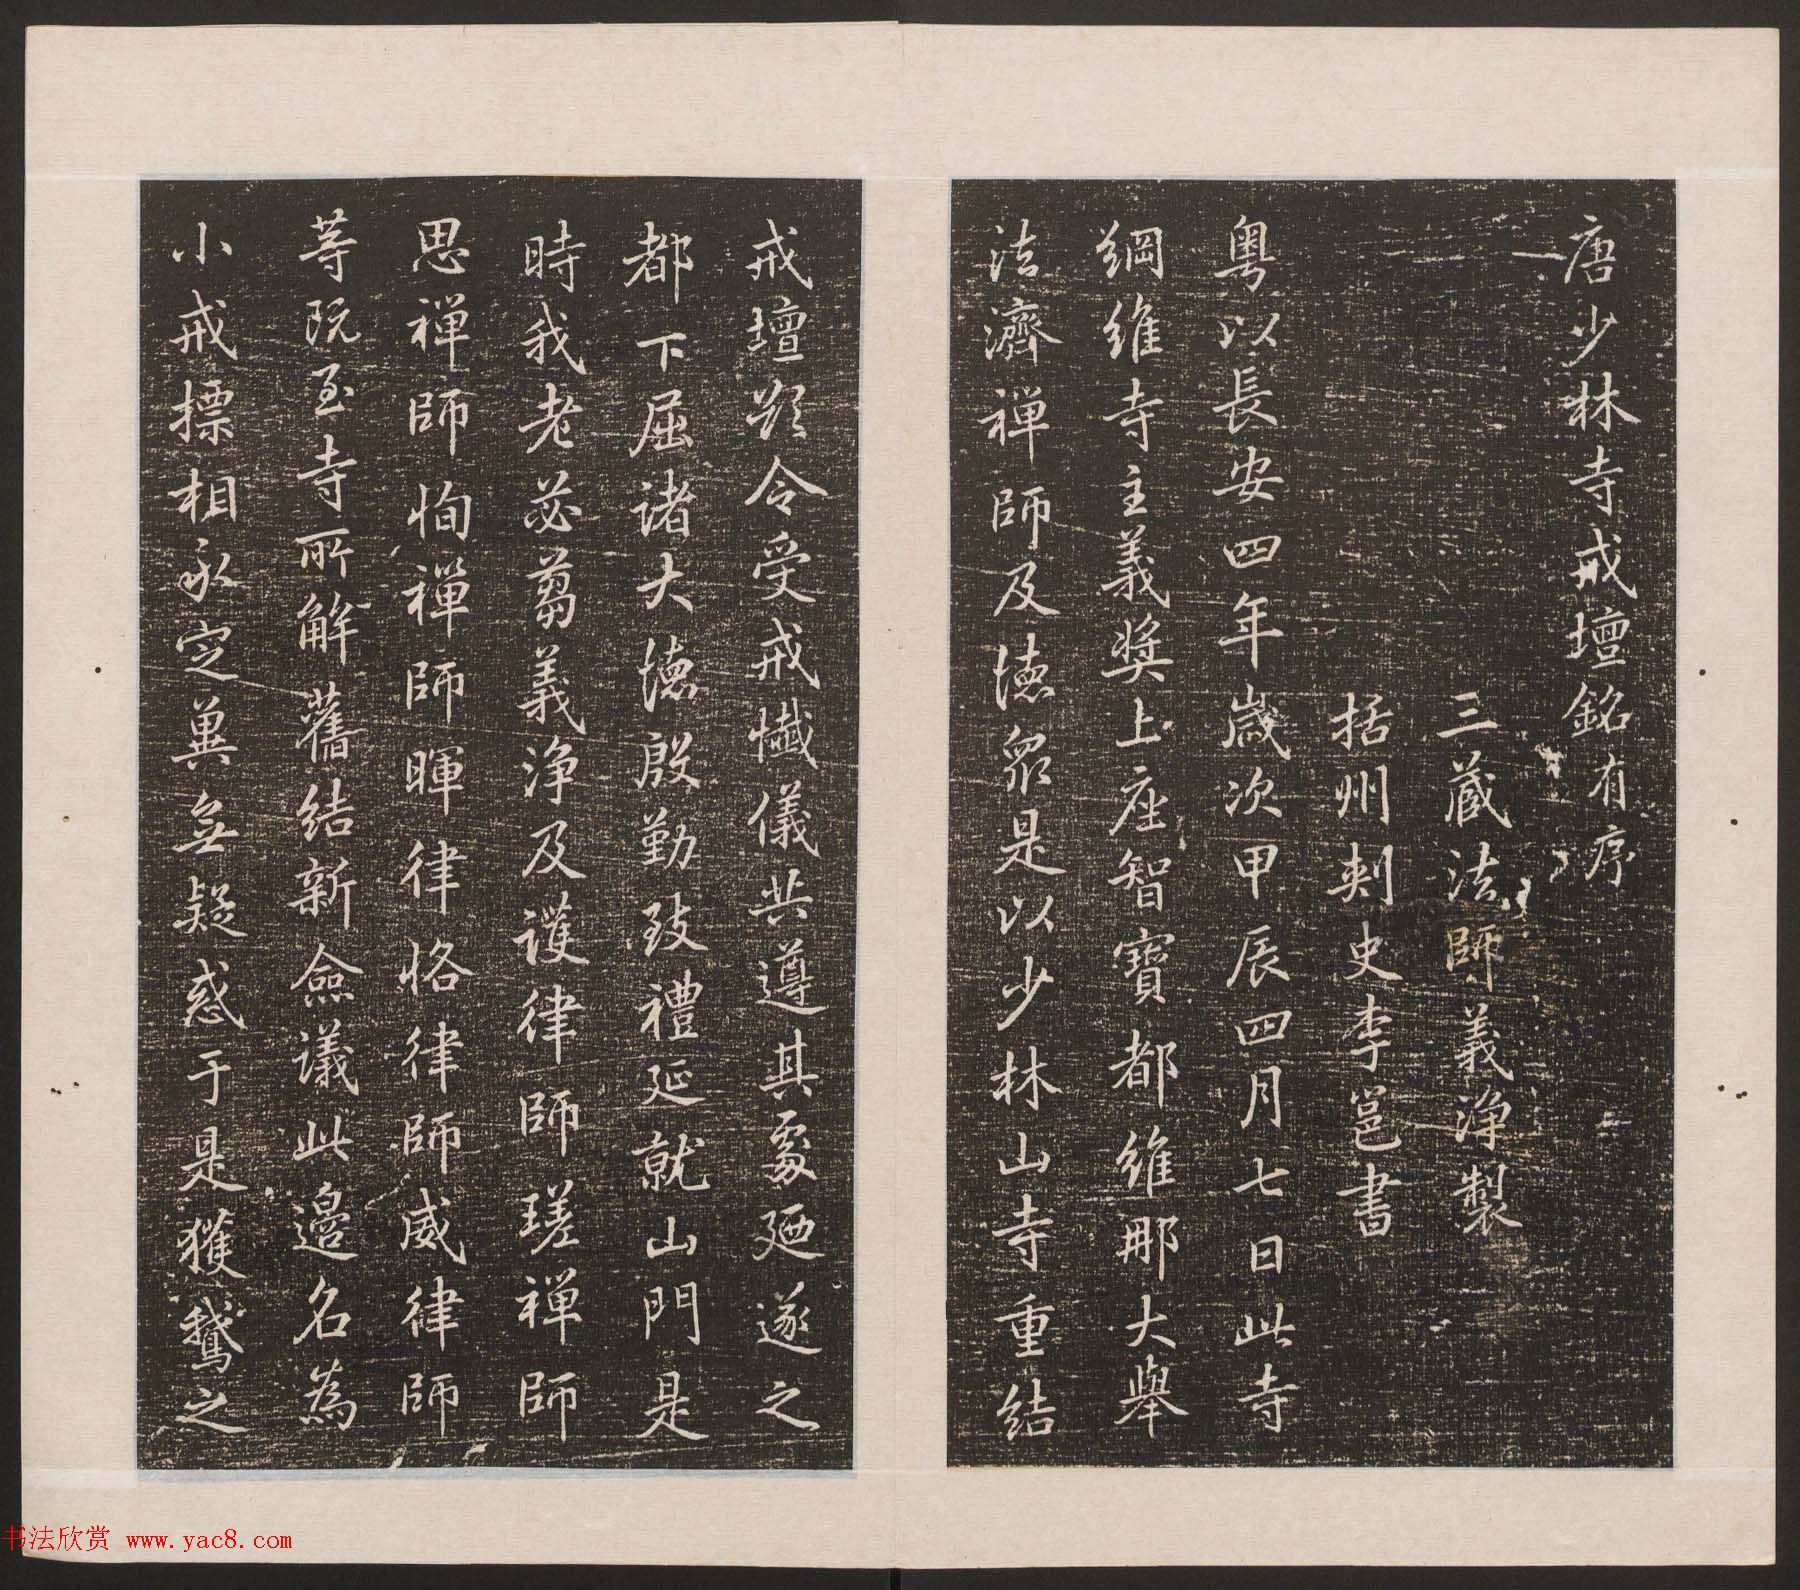 唐少林寺戒壇銘有序
三藏法師義淨製
括州刺史李邕書
粵以長安四年歲次甲辰四月七日此寺
綱維寺主義奬上座智寶都維那大舉
法濟禪師及德眾是以少林山寺重結
戒壇欲令受戒懺儀共遵其處廼遂之
都下屈諸大德殷勤致禮延就山門是
時我老苾蒭義淨及護律師瑳禪師
思禪師恂禪師暉律師恪律師威律師
等既至寺所解舊結新僉議此邊名為
小戒標相永定冀無疑惑于是獲鵝之
书法欣赏 www.yac8.com